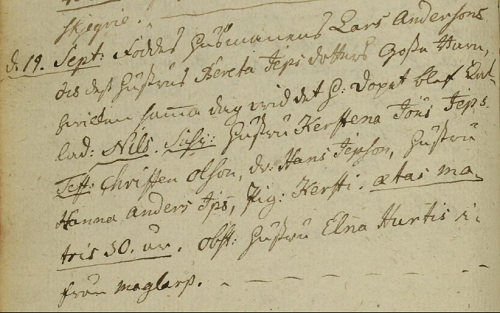 skegrie.
d. 19. Sept: Föddes Husmanens Lars Andersons
och dess Hustrus Bereta Jeps dotters Gosse Barn,
hwilcken samma dag wid det H: Dopet blef kal-
lad: Nils. Susc: Hustru Kerstena Jöns Jeps.
Test: Christen Olson, dr: Hans Jepson, Hustru
Hanna Anders Jps, Pig: Kersti. ætas ma-
tris 30. år. Obst: Hustru Elna Hurtis i-
från Maglarp.